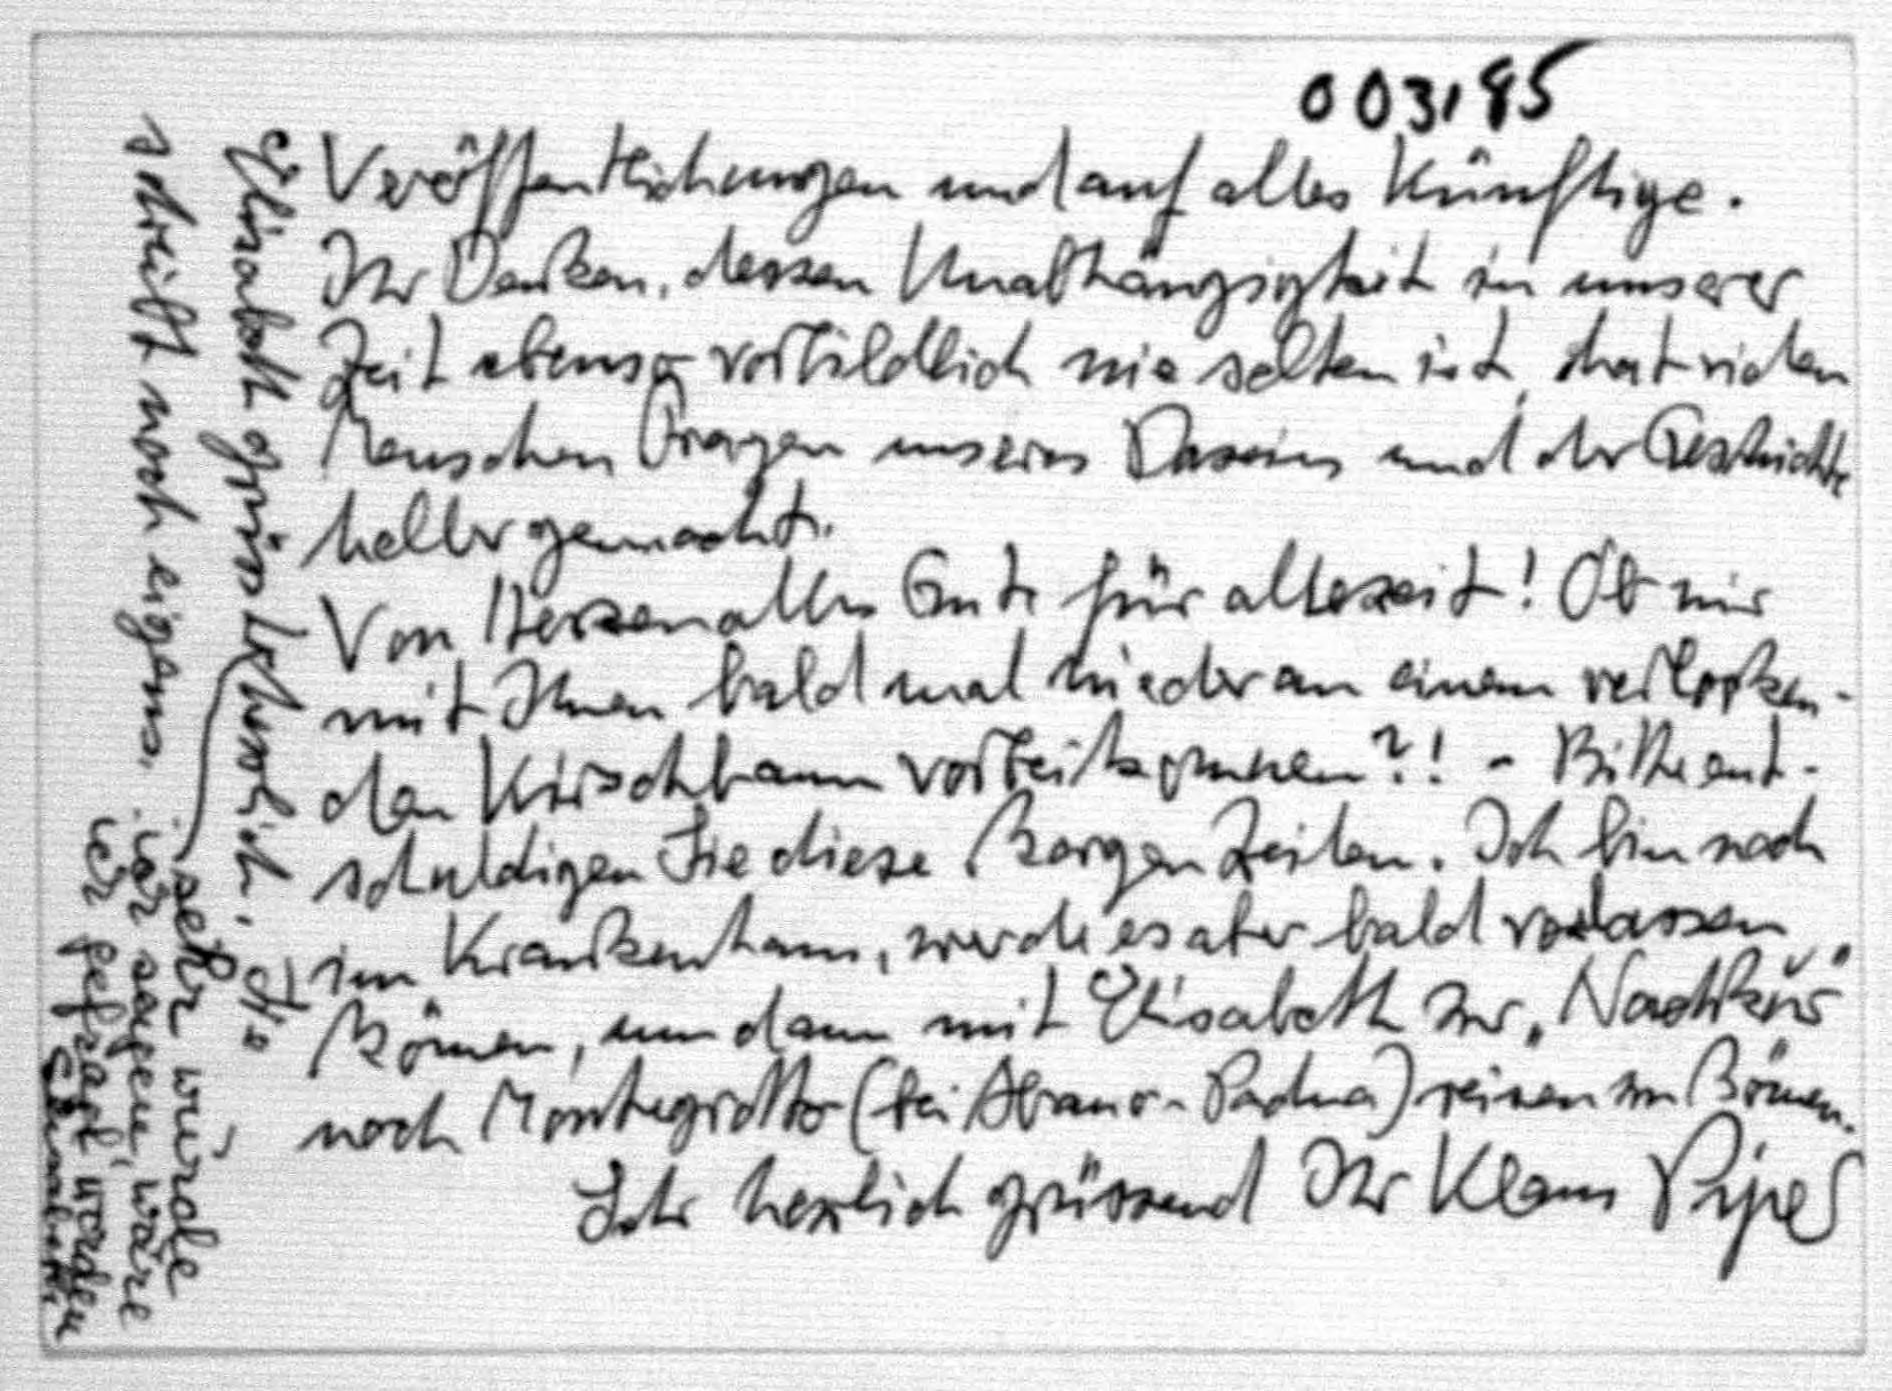 003185
Veröffentlichungen und auf alles Künftige.
Ihr Denken, dessen Unabhängigkeit in unserer
Zeit ebenso vorbildlich wie selten ist, hat vielen
Menschen Fragen unseres Daseins und der Geschichte
heller gemacht.
Von Herzen alles Gute für allezeit! Ob wir
mit Ihnen bald mal wieder an einem verlocken-
den Kirschbaum vorbeikommen?! - Bitte ent-
schuldigen Sie diese kargen Zeilen. Ich bin noch
im Krankenhaus, werde es aber bald verlassen
können, um dann mit Elisabeth zur „Nachkur"
nach Montegrotto (bei Abano-Padua) reisen zu können.
Sehr herzlich grüssend Ihr Klaus Piper
Elisabeth grüsst herzlich, sie
schreibt noch eigens.
sehr würde
sagen, wäre
er gefragt worden